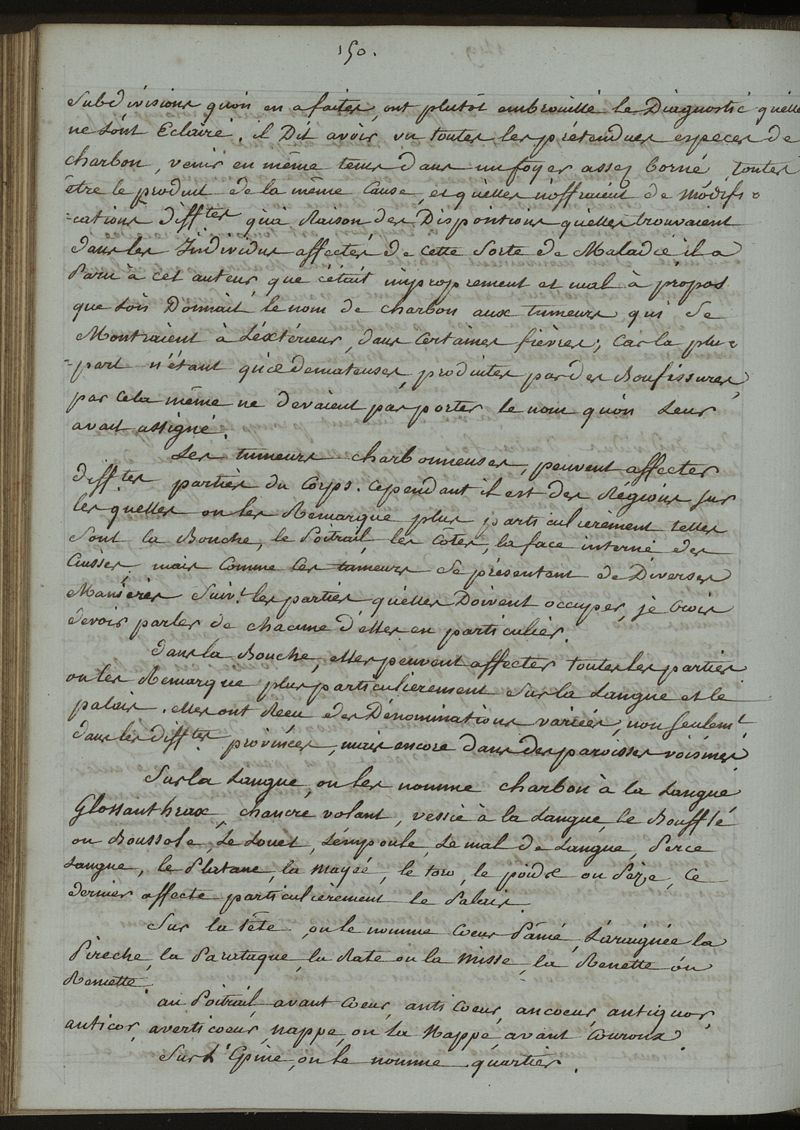 150.
Subdivisions qu'on en a faites, ont plutôt embrouillé le Diagnostic qu'elles
ne l'ont Eclairé. il Dit avoir vu toutes les prétendues especes de
charbon, venir en même tems dans un foyer assez borné, toutes
être le produit de la même Cause, et qu'elles n'offraient de modifi=
=cations difftes qu'à Raison des Dispositions qu'elles trouvaient
dans les Individus affectés de cette Sorte de Maladie il a
Paru à cet auteur que c'était improprement et mal à propos
que l'on Donnait le nom de charbon aux tumeurs qui Se
Montraient à L'éxtérieur, dans Certaines fièvres; Car la plu=
=part n'étant qu'œdemateuses, produites par des Boufissures,
par cela même ne devaient pas porter le nom qu'on Leur
avait assigné.
Les tumeurs charbonneuses, peuvent affecter
difftes parties du Corps. Cependant il est des Régions sur
lesquelles on les Remarque plus particulièrement telles
Sont la Bouche, le Poitrail, les Cotés, la face interne des
Cuisses, mais Comme les tumeurs Se présentent de Diverses
Manières Suivt. les parties qu'elles Doivent occuper, je Crois
devoir parler de chacune d'elles en particulier.
Dans la Bouche, elles peuvent affecter toutes les parties
on les Remarque plus particulierement Sur la Langue et le
palais. elles ont Recu des Dénominations variées, non Seulemt.
dans les difftes. provinces, mais encore dans des paroisses voisines.
Sur la Langue, on les nomme charbon à la Langue
Glossanthrax, chancre volant, vessie à la Langue, le Boufflé
ou Boussole, Le Louet, L'empoule, Le mal de Langue, Perce
Langue, le Platane, la Mayeé, le toro, le poidre ou Péze, Ce
dernier affecte particulièrement le Palais.
Sur la tête, on le nomme Coeur Pâmé, L'araignée la
Pireche, la Parataque, la Rate ou la Misse, la Renette ou
Remette.
au Poitrail, avant Coeur, anti Coeur, ancoeur, antiquor,
anticor, averticoeur, nappe, ou la Nappe, avant Couroux.
Sur L'Epine, on le nomme quartier.